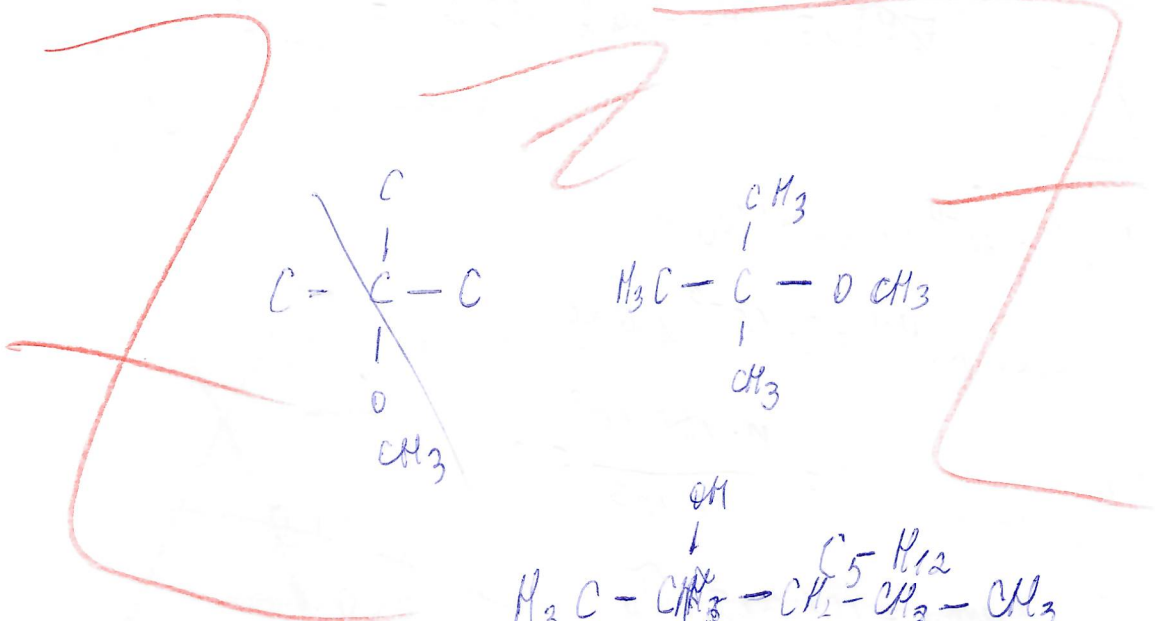 C
C - C - C
O
CH3
CH3
H3C - C - O CH3
CH3
OH
C5H12
H3C - CH - CH2 - CH3 - CH3